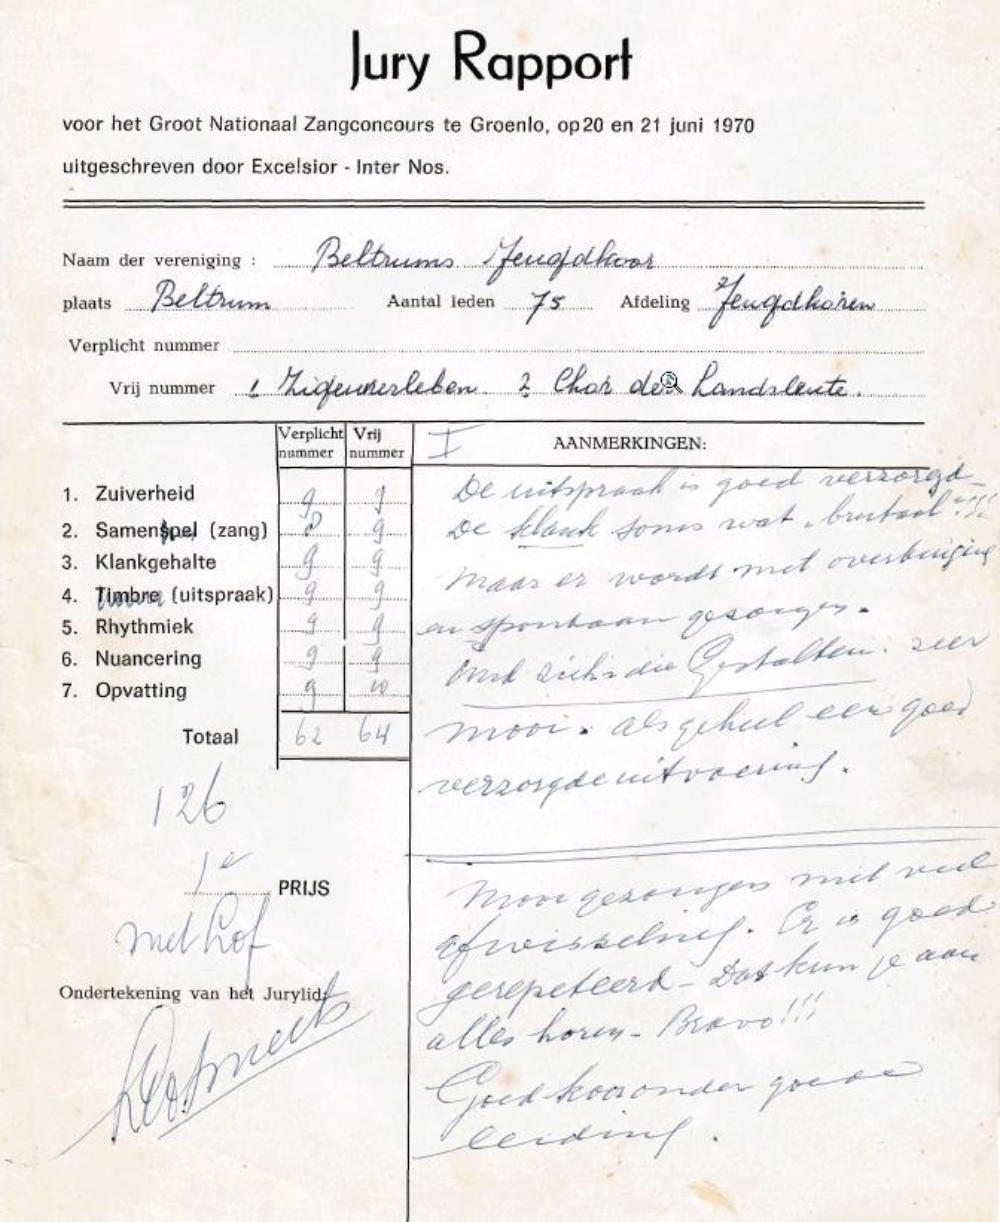 Jury Rapport
voor het Groot Nationaal Zangconcours te Groenlo, op 20 en 21 juni 1970
uitgeschreven door Excelsior - Inter Nos.
Naam der vereniging : Beltrums Jeugdkoor
plaats Beltrum Aantal leden 75 Afdeling Jeugdkoren
Verplicht nummer
Vrij nummer 1 Zigeunerleben 2 Chor der Landsleute.
Verplicht nummer Vrij nummer I AANMERKINGEN:
1. Zuiverheid 9 9
2. Samen (zang) 9
3. Klankgehalte 9 9
4. Timbre (uitspraak) 9 9
5. Rhythmiek 9 9
6. Nuancering 9 9
7. Opvatting 9 10
Totaal 62 64
126
1e PRIJS
met lof
Ondertekening van het Jurylid:
De uitspraak is goed verzorgd -
De klank soms wat "brutaal"!!!
Maar er wordt met overtuiging
en spontaan gezongen.
die Gestalten. zeer
mooi. als geheel een goed
verzorgde uitvoering.
Mooi gezongen met veel
afwisseling. Er is goed
gerepeteerd - Dat kun je aan
alles horen - Bravo!!!
Goed koor onder goede
leiding.